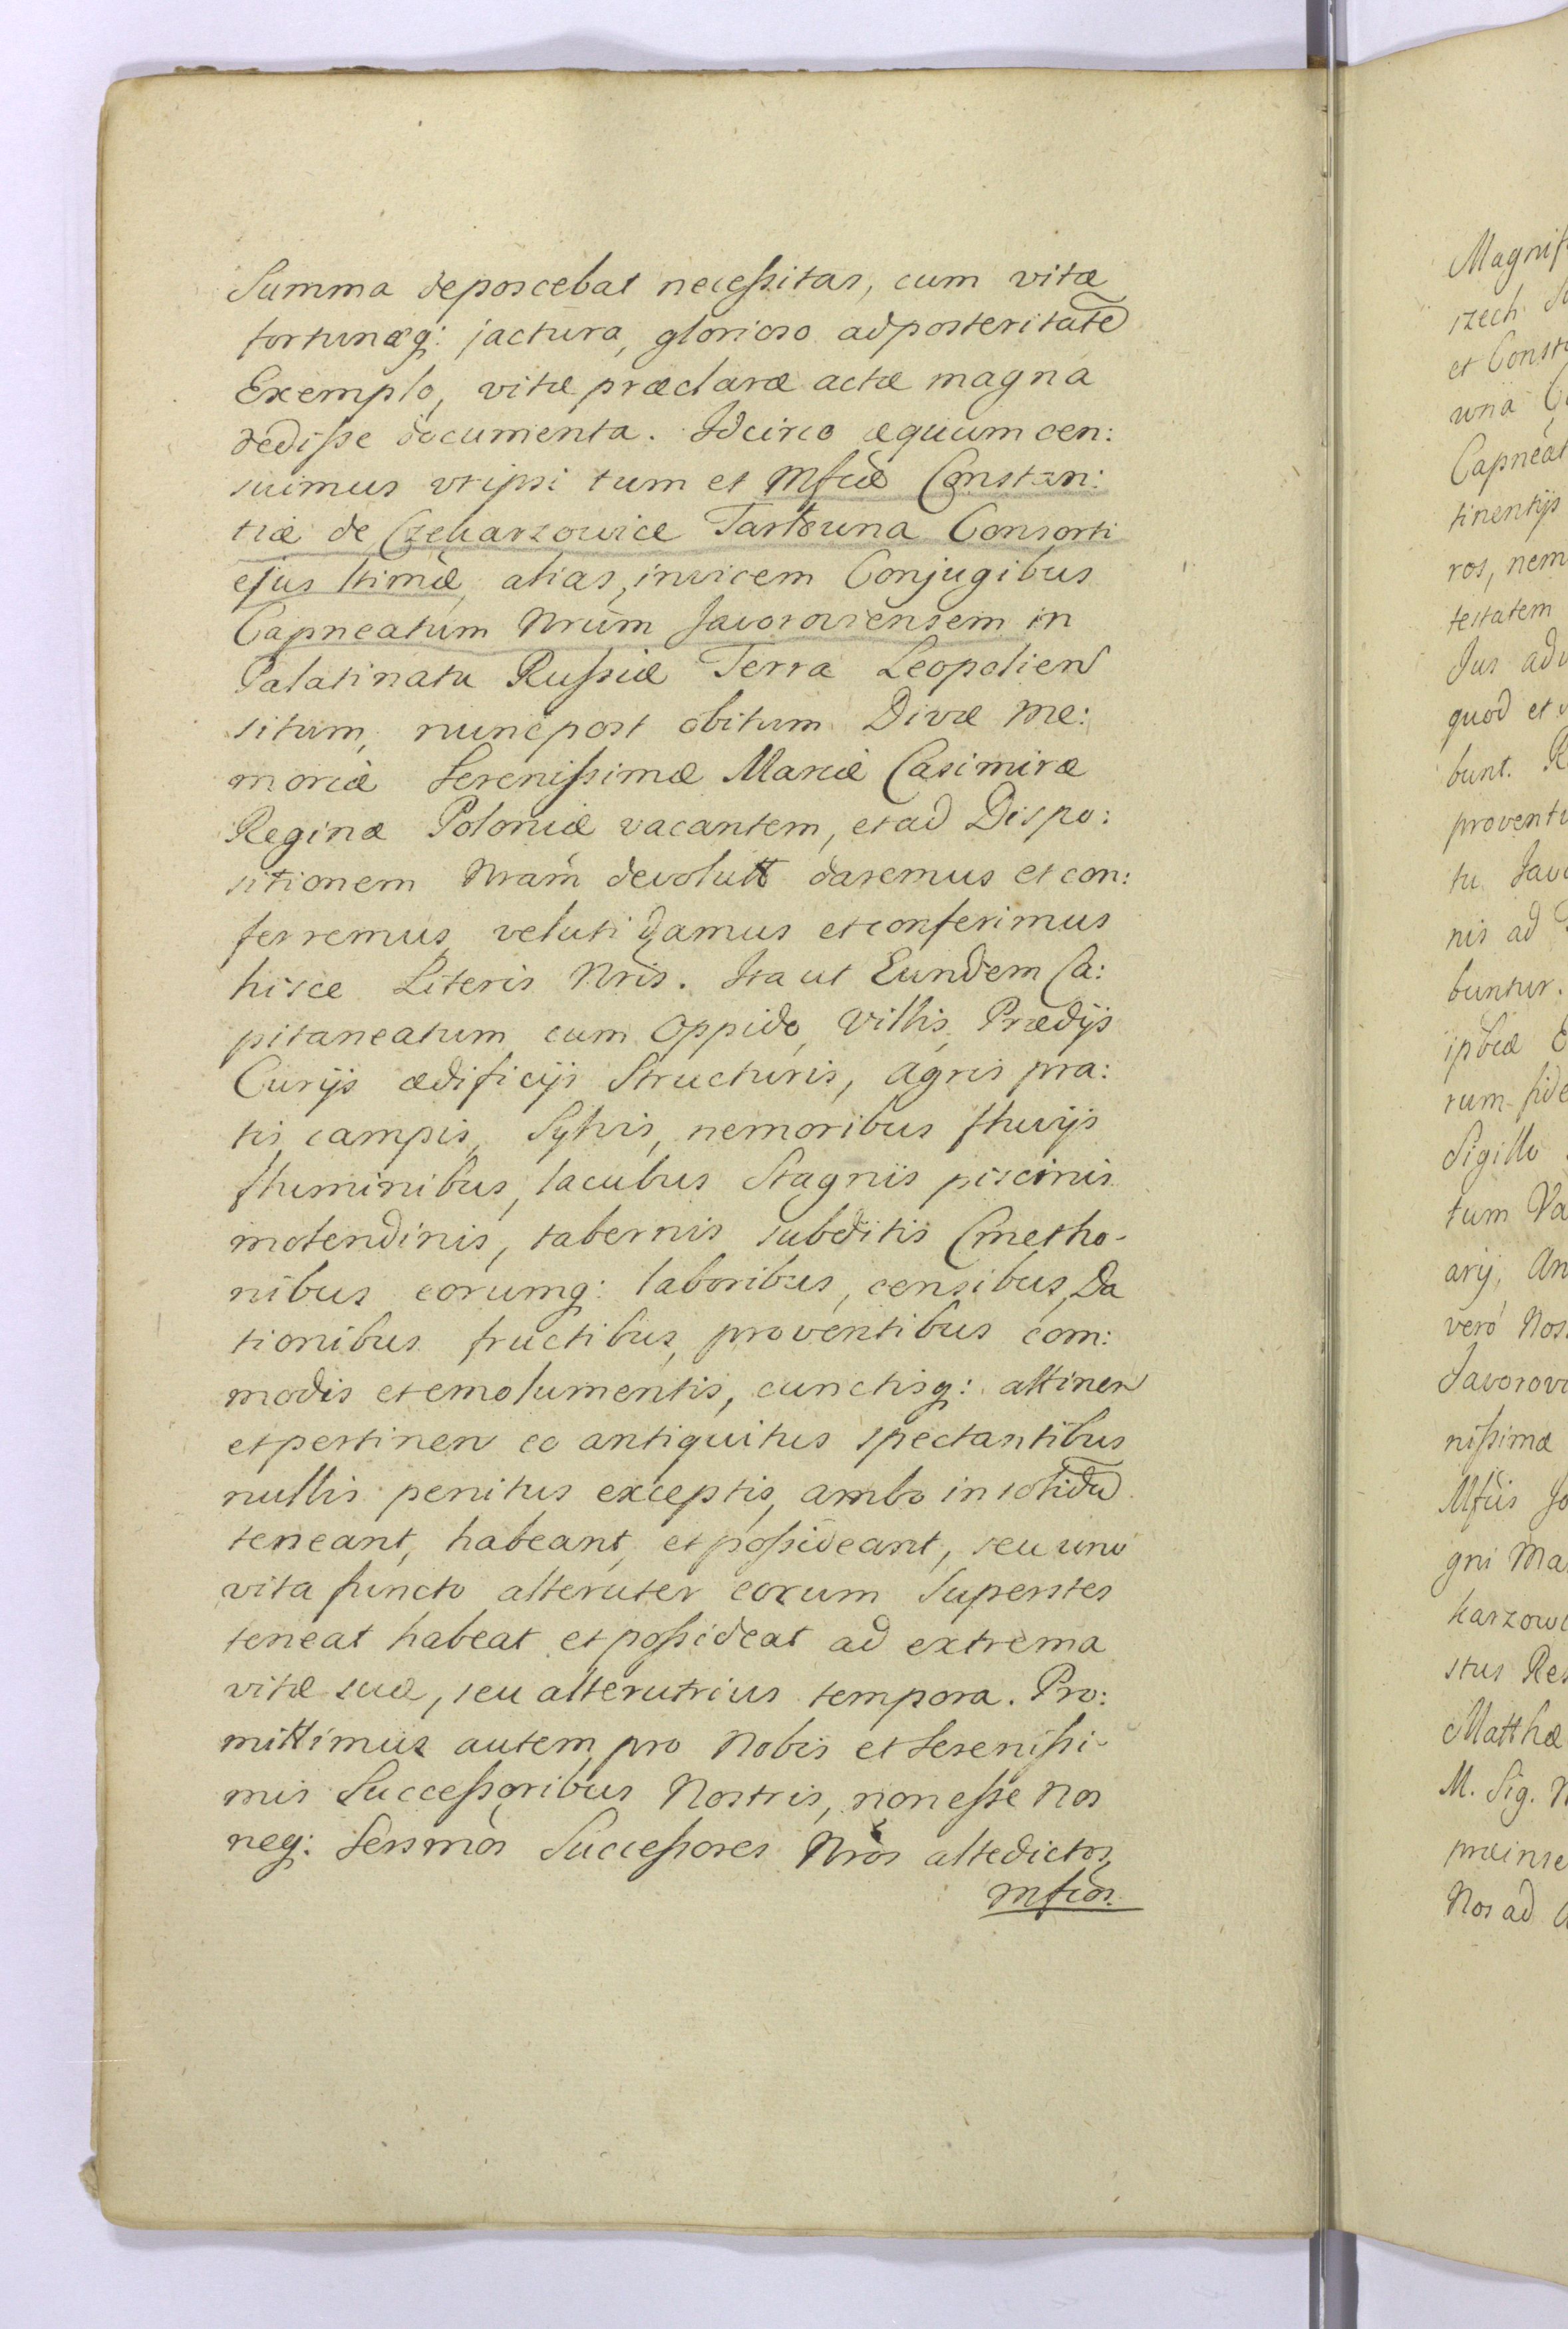 Summa deposcebat necessitas, cum vitæ
fortunæq: jactura, glorioso ad posteritatē
Exemplo, vitæ præclaræ actæ magna
dedisse documenta. Idcirco æquum cen:
suimus ut ipsi tum et Mfcæ Constan:
tiæ de Czekarzowice Tarłouna Consorti
ejus ltimæ, alias, invicem Conjugibus
Capneatum Nrūm Javoroviensem in
Palatinatu Russiæ Terra Leopolien
situm, nunc post obitum Divæ me:
moriæ Serenissimæ Mariæ Casimiræ
Reginæ Poloniæ vacantem, et ad Dispo:
sitionem Nram devolutt daremus et con:
ferremus, veluti damus et conferimus
hisce Literis Nris. Ita ut Eundem Ca:
pitaneatum cum Oppido, Villis, Prædijs
Curijs ædificijs Structuris, agris pra:
tis, campis, Sylvis, nemoribus fluvijs
fluminibus, lacubus Stagnis piscinis
molendinis, tabernis subditis Cmetho-
nibus eorumq: laboribus, censibus, Da
tionibus fructibus, proventibus com:
modis et emolumentis, cunctisq: attinen
et pertinen eo antiquitus spectantibus
nullis penitus exceptis, ambo in solidū
teneant, habeant, et possideant, seu uno
vita functo alteruter eorum Superstes
teneat habeat et possideat ad extrema
vitæ suæ, seu alterutrius tempora. Pro:
mittimus autem pro Nobis et Serenissi-
mis Successoribus Nostris, non esse Nos
neq: Sersmos Successores Nros altedictos,
Mfcos.
Magnif
rzech
et Const
una
Capneat
tinentijs
ros, nem
testatem
Jus adv
quod et
bunt. R
proventu
tu Javo
nis ad
buntur.
rum fide
Sigillo
tum Va
arij, An
veró Nos
Javorovi
nissimæ
Mfcis Jo
gni Ma
karzowi
stus Res
Matthæ
M. Sig. N
præinse
Nos ad